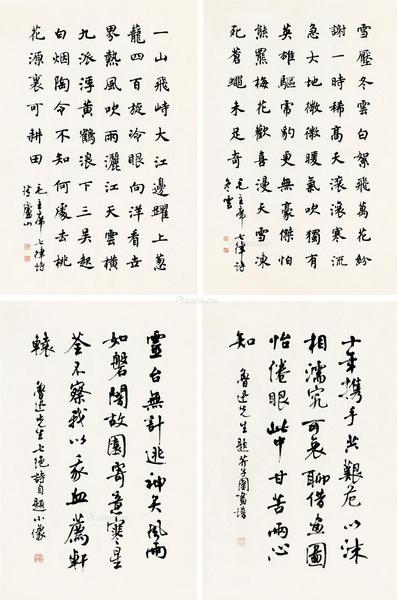 雪壓冬雲白絮飛萬花紛
謝一時稀高天滾滾寒流
急大地微微暖氣吹獨有
英雄驅虎豹更無豪傑怕
熊羆梅花歡喜漫天雪凍
死蒼蠅未足奇
毛主席七律詩
冬雲
一山飛峙大江邊躍上蔥
蘢四百旋冷眼向洋看世
界熱風吹雨灑江天雲橫
九派浮黃鶴浪下三吳起
白烟陶令不知何處去桃
花源裏可耕田
毛主席七律詩
登廬山
十年攜手共艱危以沫
相濡究可哀聊借畫圖
怡倦眼此中甘苦兩心
知
魯迅先生題芥子園畫譜
靈台無計逃神矢風雨
如磐闇故園寄意寒星
荃不察我以我血薦軒
轅
魯迅先生七絕詩自題小像